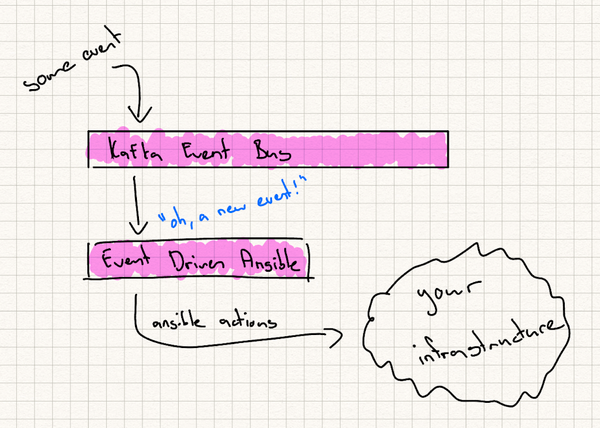 some event
Kafka Event Bus
"oh, a new event!"
Event Driven Ansible
ansible actions
your
infrastructure